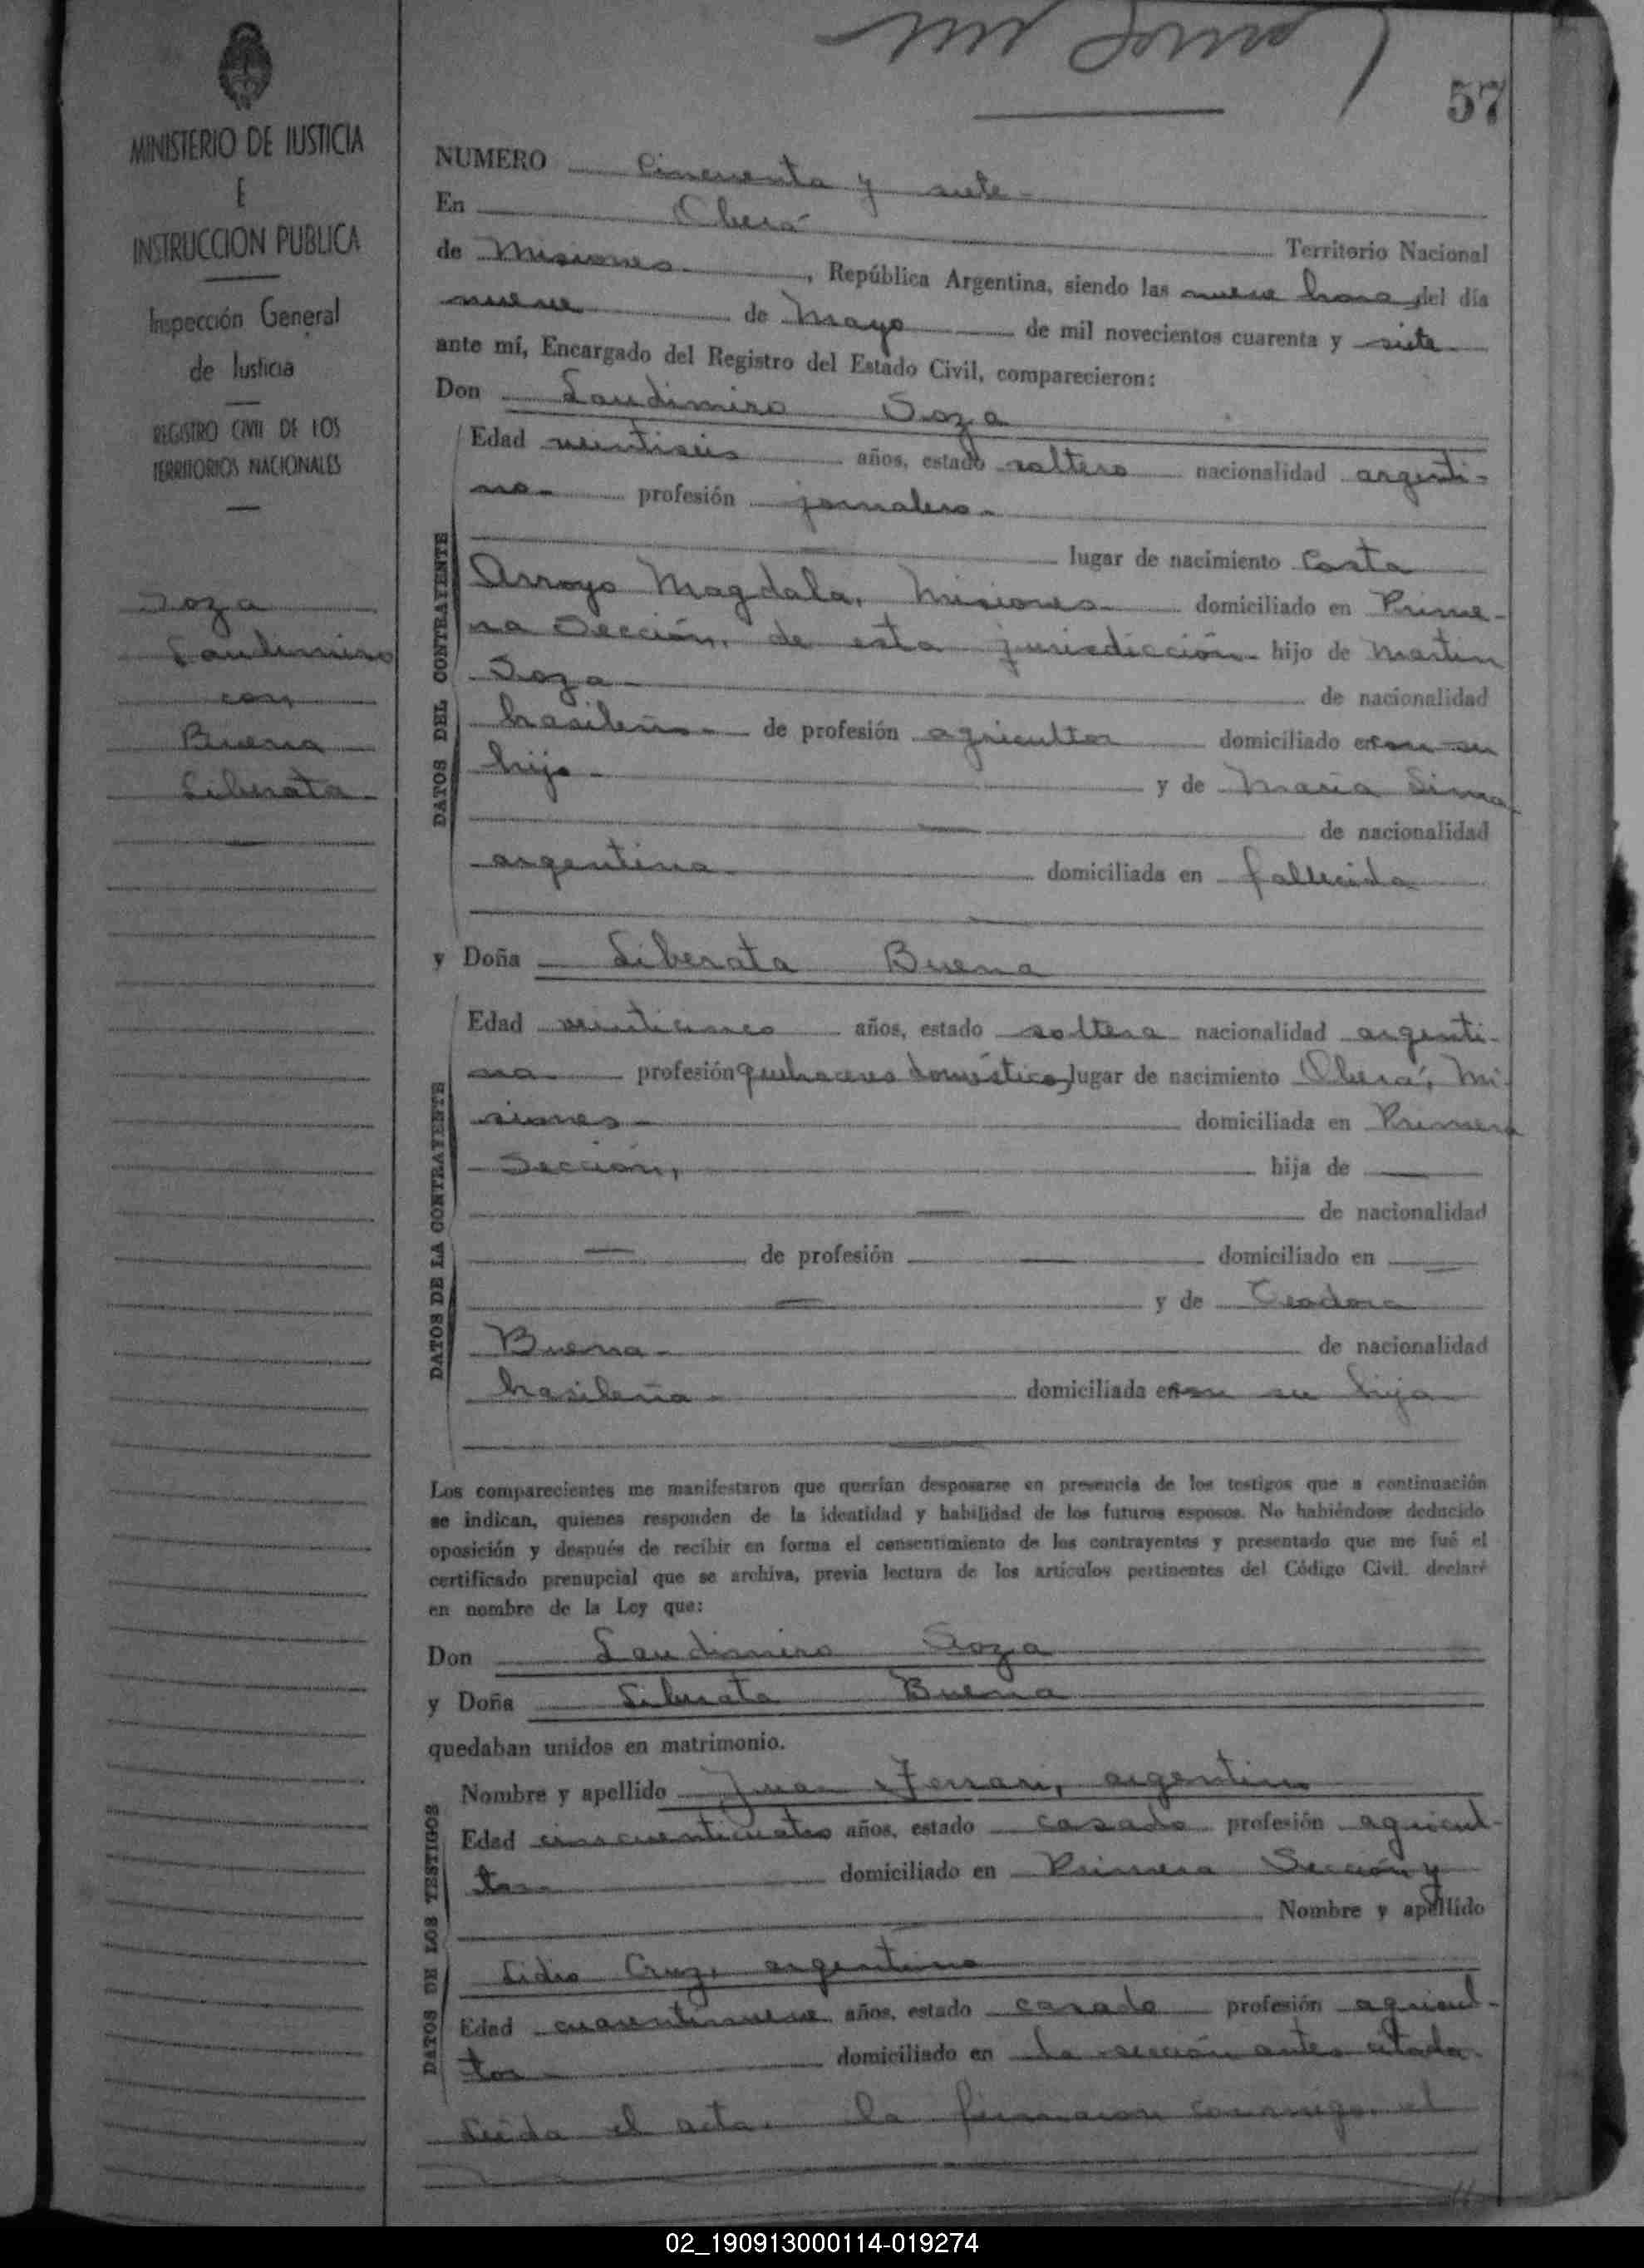 57
MINISTERIO DE JUSTICIA
E
INSTRUCCION PUBLICA
Inspección General
de Justicia
REGISTRO CIVIL DE LOS
TERRITORIOS NACIONALES
Soza
Laudimiro
con
Buena
Liberata
NUMERO Cincuenta y siete
En Oberá Territorio Nacional
de Misiones, República Argentina, siendo las nueve horas del día
nueve de Mayo de mil novecientos cuarenta y siete
ante mí, Encargado del Registro del Estado Civil, comparecieron:
Don Laudimiro Soza
DATOS DEL CONTRAYENTE
Edad veintiseis años, estado soltero nacionalidad argenti-
no- profesión jornalero-
lugar de nacimiento Costa
Arroyo Magdala, Misiones domiciliado en Prime-
ra Sección, de esta jurisdicción- hijo de Martin
Soza- de nacionalidad
brasileño- de profesión agricultor domiciliado en con su
hijo- y de Maria Lima
de nacionalidad
argentina domiciliada en fallecida
y Doña Liberata Buena
DATOS DE LA CONTRAYENTE
Edad veinticinco años, estado soltera nacionalidad argenti-
na- profesión quehaceres domésticos lugar de nacimiento Oberá, Mi-
siones- domiciliada en Primera
Sección, hija de
de nacionalidad
de profesión domiciliado en
y de Teodora
Buena- de nacionalidad
brasileña- domiciliada en con su hija
Los comparecientes me manifestaron que querían desposarse en presencia de los testigos que a continuación
se indican, quienes responden de la identidad y habilidad de los futuros esposos. No habiéndose deducido
oposición y después de recibir en forma el consentimiento de los contrayentes y presentado que me fué el
certificado prenupcial que se archiva, previa lectura de los artículos pertinentes del Código Civil. declaré
en nombre de la Ley que:
Don Laudimiro Soza
y Doña Liberata Buena
quedaban unidos en matrimonio.
DATOS DE LOS TESTIGOS
Nombre y apellido Juan Ferrari, argentino
Edad cincuenticuatro años, estado casado profesión agricul-
tor- domiciliado en Primera Sección y
Nombre y apellido
Lidio Cruz, argentino
Edad cuarentinueve años, estado casado profesión agricul-
tor- domiciliado en la sección antes citada.
Leída el acta, la firmaron conmigo, el
02_190913000114-019274